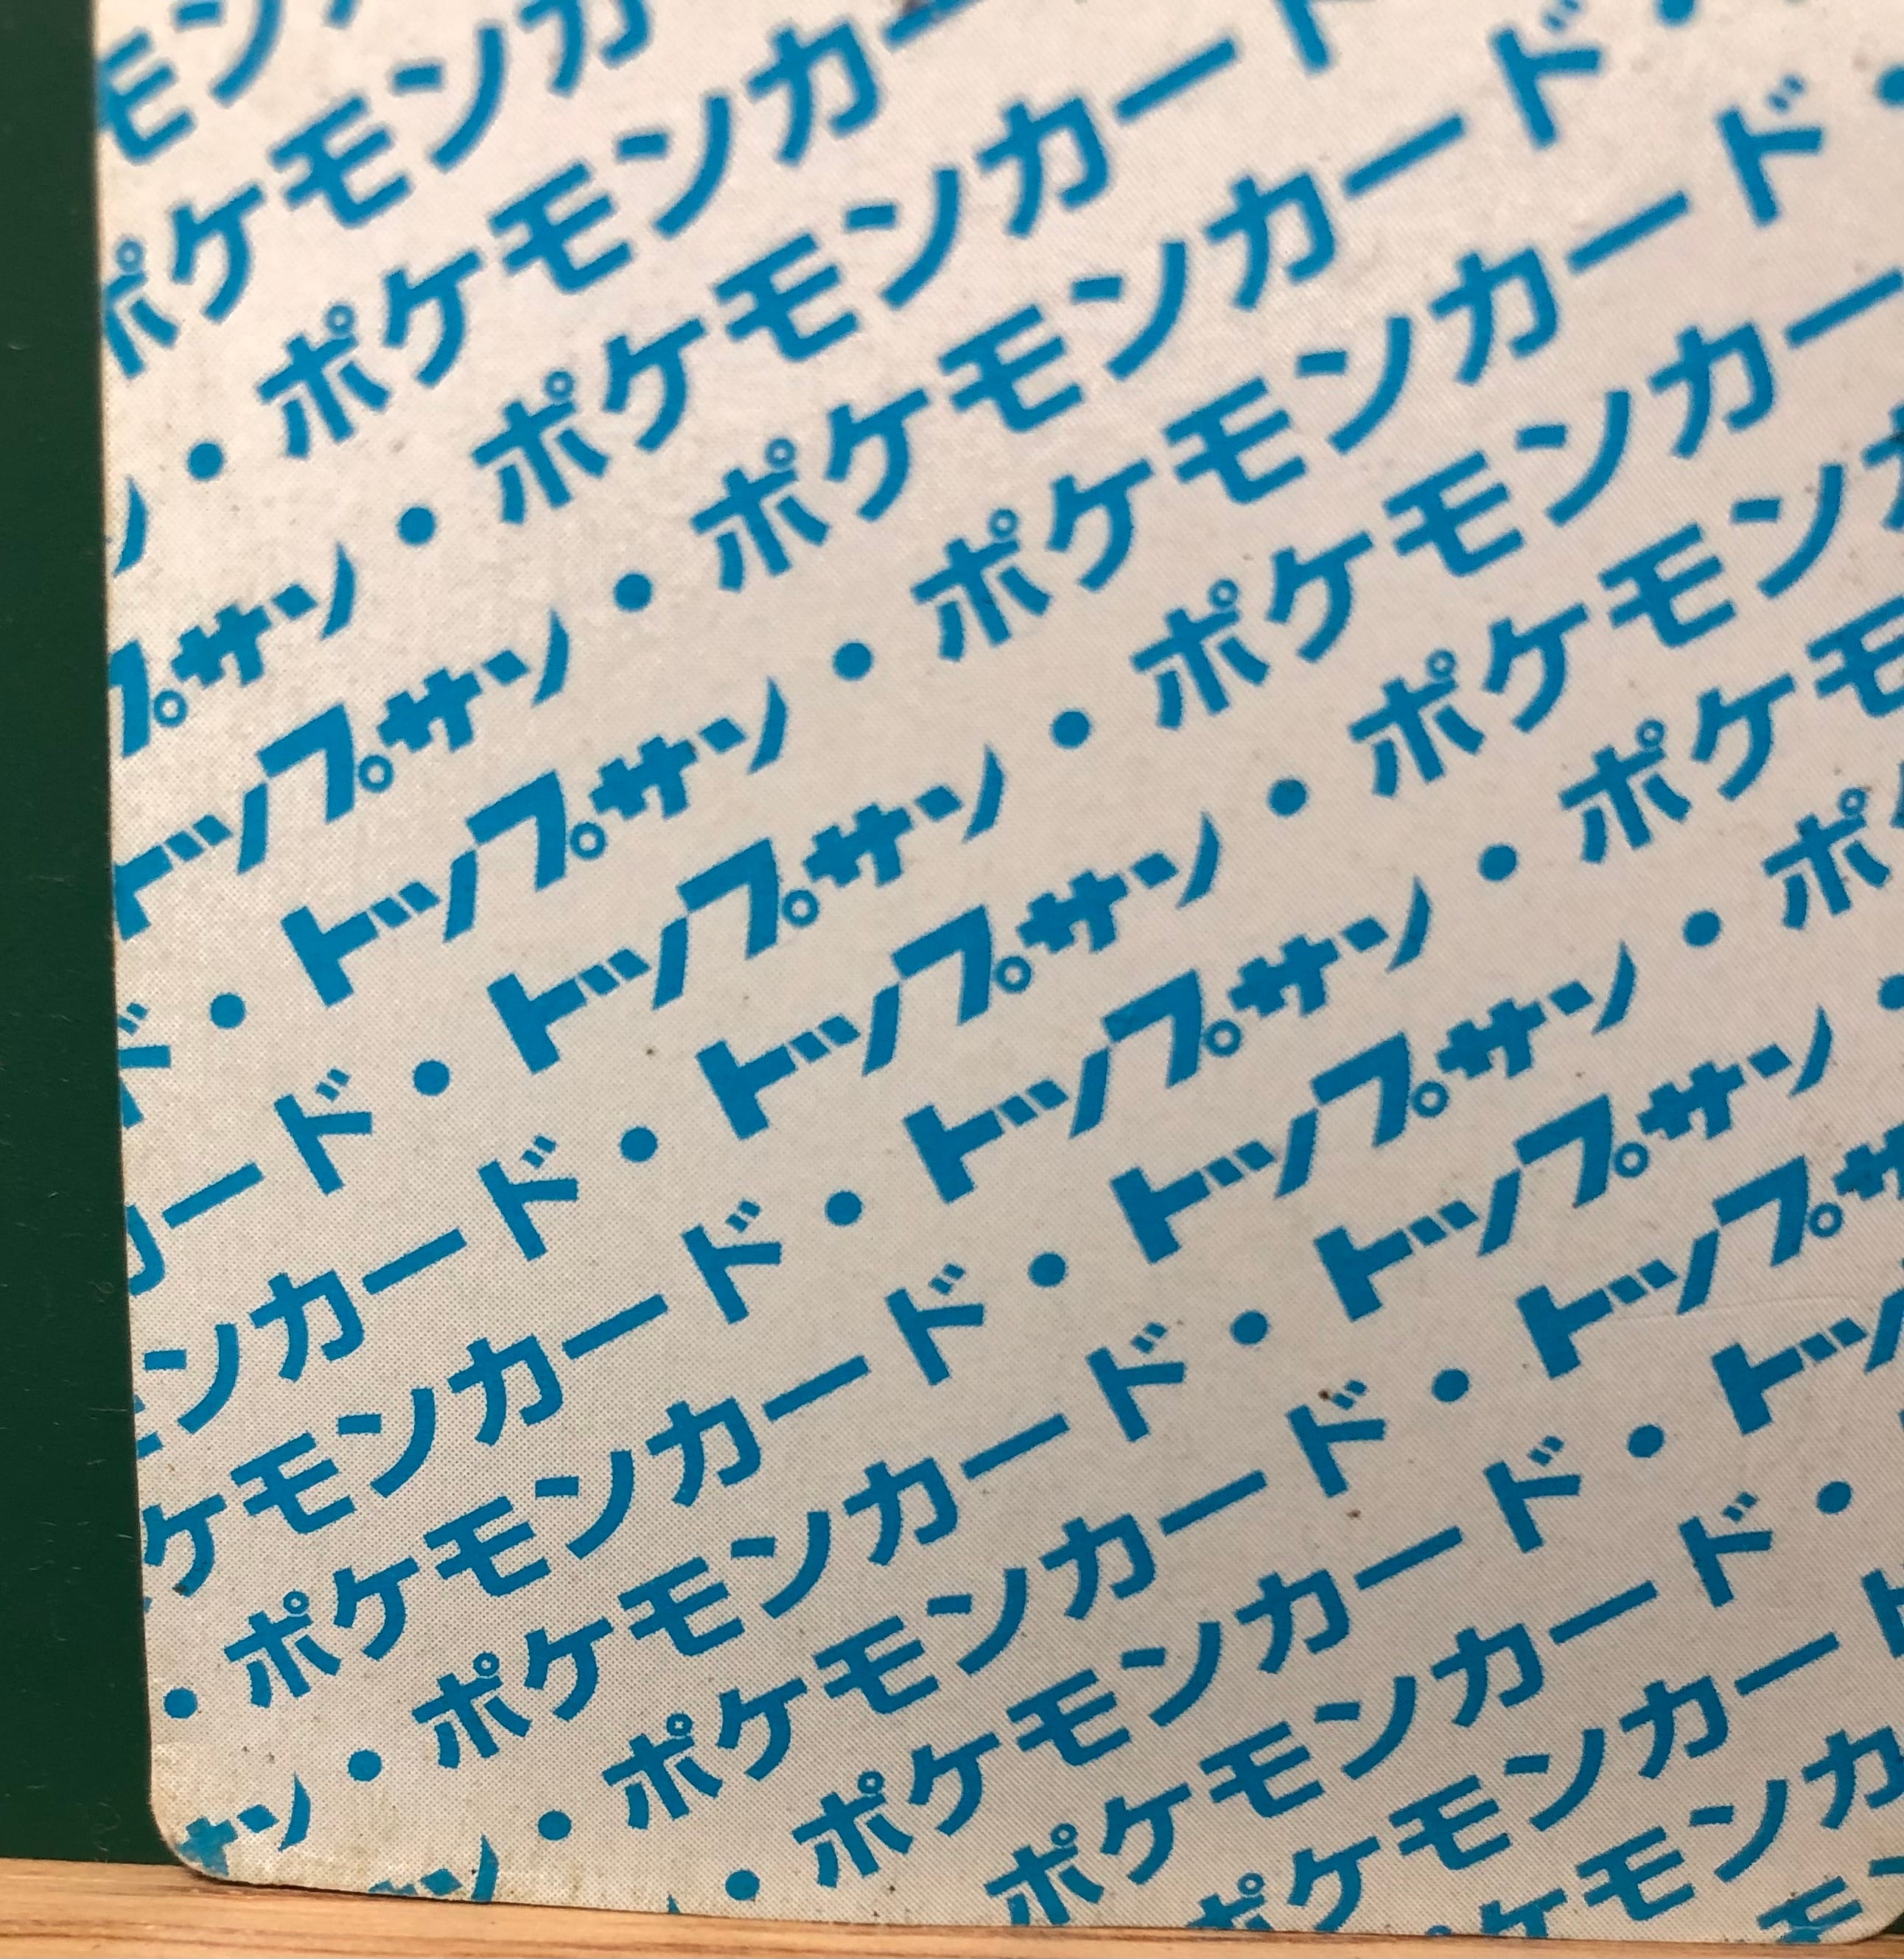 モン
ポケモンカ
ン・ポケモンカー
プサン・ポケモンカード
トップサン・ポケモンカード・
ド・トップサン・ポケモンカード・
カード・トップサン・ポケモンカー
モンカード・トップサン・ポケモンカ
ケモンカード・トップサン・ポケモ
・ポケモンカード・トップサン・ポ
サン・ポケモンカード・トップサン・
サン・ポケモンカード・トップサ
・ポケモンカード・トッ
ポケモンカード・
ポケモンカード
ケモンカ
モ